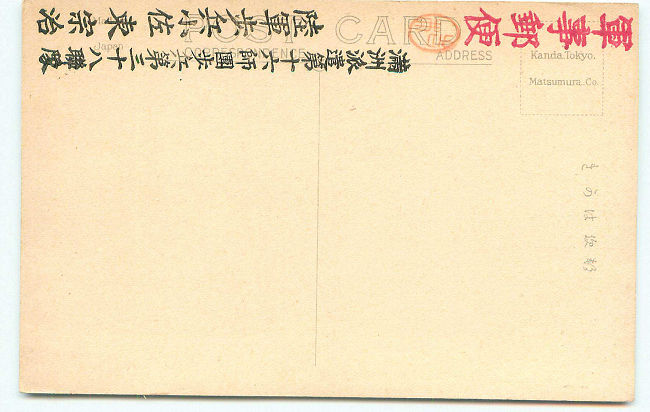 軍事郵便
滿洲派遣第十六師團歩兵第三十八聯隊
陸軍歩兵少佐東宗治
POST CARD
Japan
CORRESPONDENCE
ADDRESS
Kanda.Tokyo.
Matsumura.Co.
きかは便郵